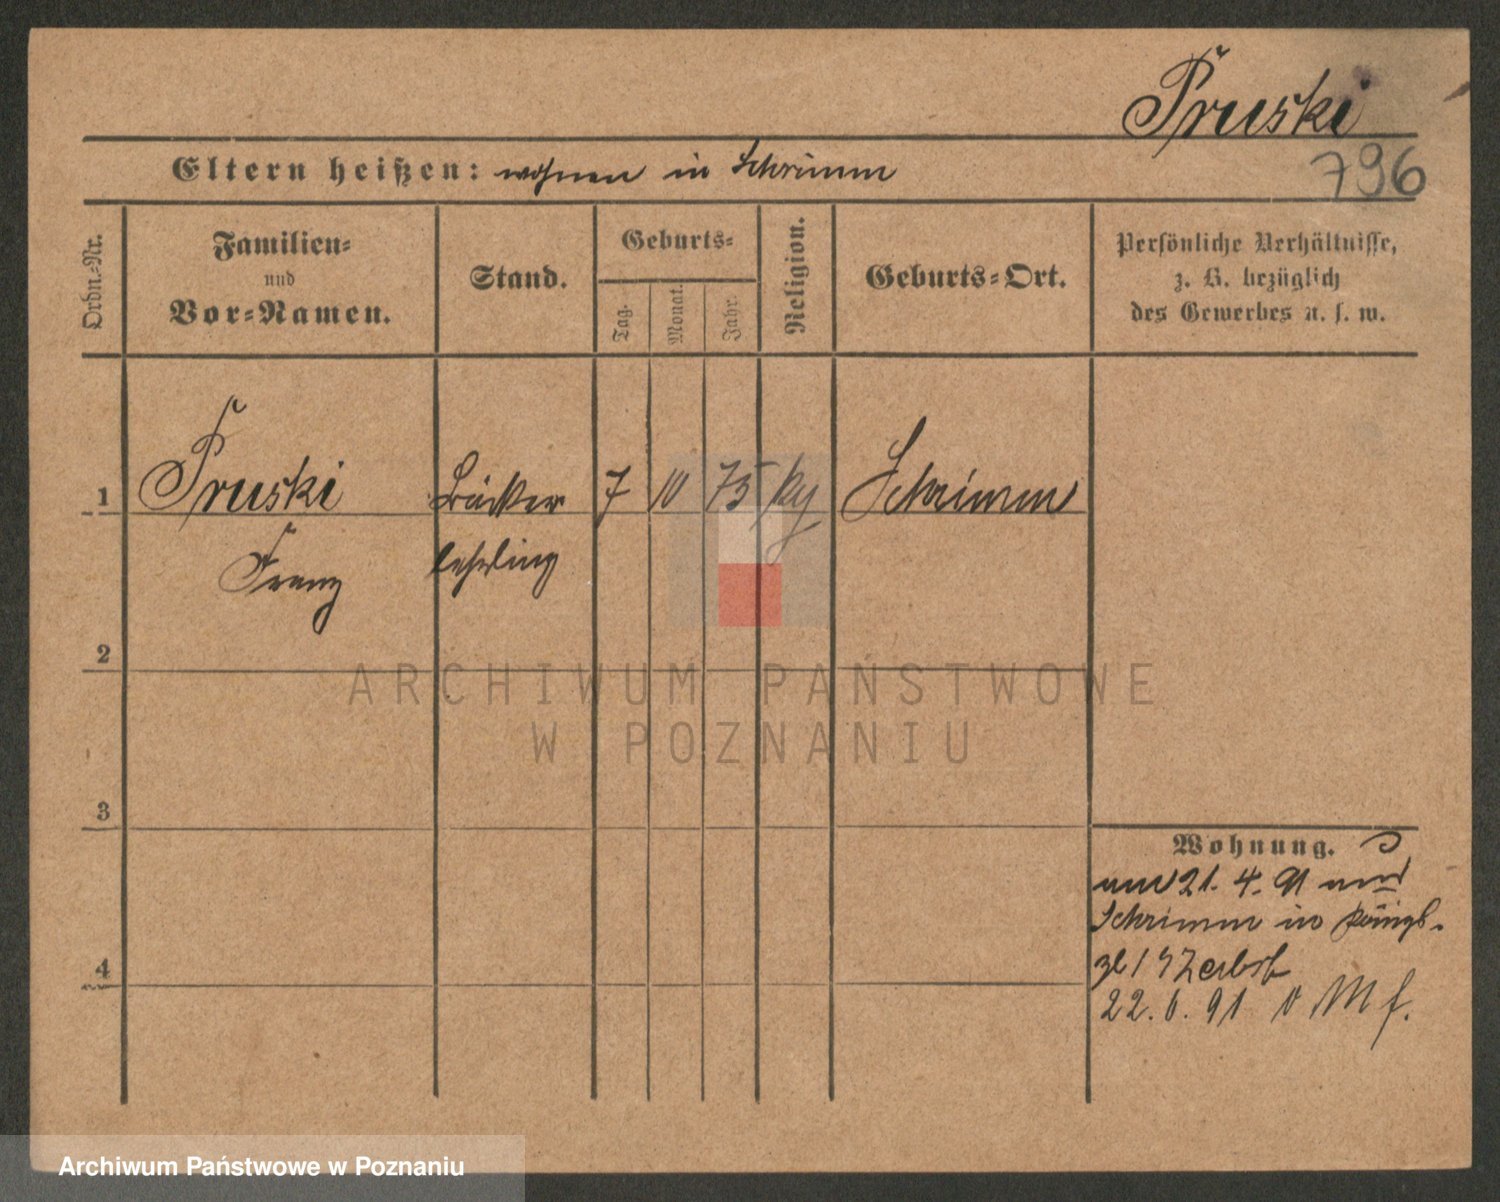 Pruski
796
Eltern heißen: wohnen in Schrimm
Ordn.-Nr.
Familien-
und
Vor-Namen.
Stand.
Geburts-
Tag.
Monat.
Jahr.
Religion.
Geburts-Ort.
Persönliche Verhältnisse,
z. B. bezüglich
des Gewerbes u. s. w.
1 Pruski Bäcker 7 10 75 Schrimm
Franz lehrling
2
ARCHIWUM PAŃSTWOWE
W POZNANIU
3
4
Wohnung.
21. 4. 91
Schrimm
22. 6. 91
Archiwum Państwowe w Poznaniu